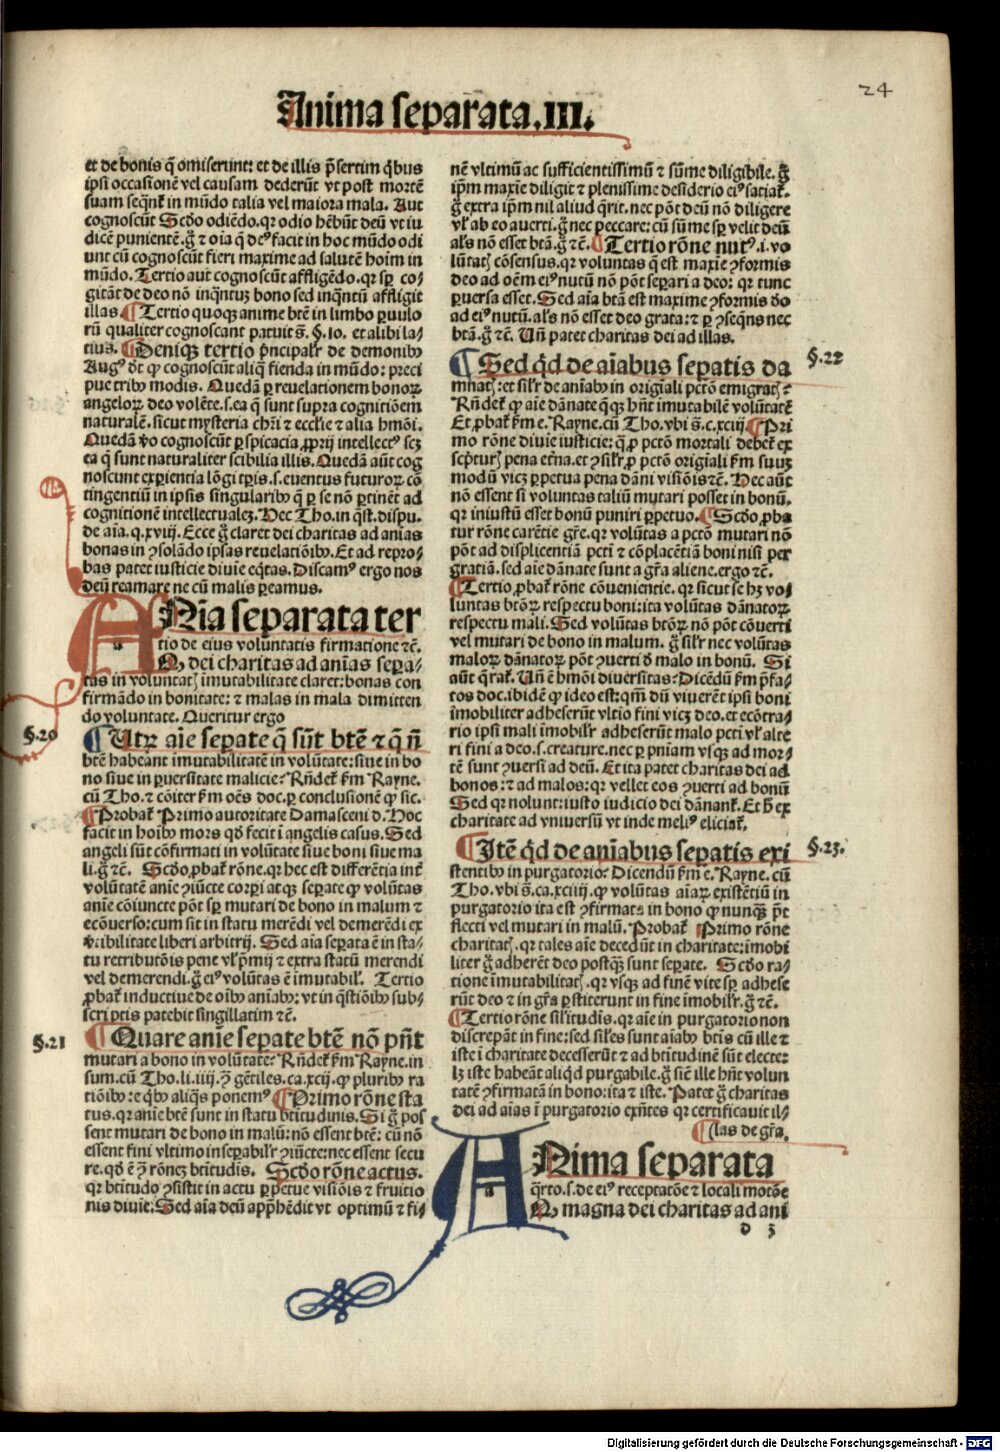 24
Anima separata.III.
et de bonis q̄ omiserunt: et de illis p̄sertim q̇bus
ipsi occasionē vel causam dederūt vt post mortē
suam seqn̄t in mūdo talia vel maiora mala. Aut
cognoscūt Scd̄o odiēdo. qr odio hēbūt deū vt iu
dicē punientē. g̊ ⁊ oīa q̄ deꝰ facit in hoc mūdo odi
unt cū cognoscūt fieri maxime ad salutē hoīm in
mūdo. Tertio aut cognoscūt affligēdo. qr sꝑ co-
gitāt de deo nō inq̄ntuꝫ bono sed inq̄ntū affligit
illas. Tertio quoqꝫ anime btē in limbo ꝑuulo
rū qualiter cognoscant patuit s̄. §.10. et alibi la-
tius. Deniqꝫ tertio p̄ncipalr̄ de demonibꝫ
Augꝰ dt̄ ꝙ cognoscūt aliq̄ fienda in mūdo: preci
pue tribꝫ modis. Quedā ꝑ reuelationem bonoꝝ
angeloꝝ deo volēte. s. ea q̄ sunt supra cognitiōem
naturalē. sicut mysteria chr̄i ⁊ eccl̄ie ⁊ alia hmōi.
Quedā v̄o cognoscūt ꝑspicacia ꝓprij intellectꝰ scꝫ
ea q̄ sunt naturaliter scibilia illis. Quedā aūt cog
noscunt exꝑientia lōgi tp̄is. s. euentus futuroꝝ cō
tingentiū in ipsis singularibꝫ q̄ ꝑ se nō ꝑtinēt ad
cognitionē intellectualeꝫ. Hec Tho. in q̄st. dispu.
de aīa. q. xviij. Ecce g̊ claret dei charitas ad anīas
bonas in ꝯsolādo ipsas reuelatiōibꝫ. Et ad repro-
bas patet iusticie diuīe eq̄tas. Discamꝰ ergo nos
deū reamare ne cū malis ꝑeamus.
ANīa separata ter
tio de eius voluntatis firmatione ⁊c̄.
Nꝫ dei charitas ad anīas sepa-
tas in voluntatꝭ īmutabilitate claret: bonas con
firmādo in bonitate: ⁊ malas in mala dimitten
do voluntate. Queritur ergo
§.20
Utꝝ aīe sepate q̄ sūt btē ⁊ q̄ nō
btē habeāt īmutabilitatē in volūtate: siue in bo
no siue in ꝑuersitate malicie? Rn̄det ẜm Rayne.
cū Tho. ⁊ cōiter ẜm oēs doc. ꝑ conclusionē ꝙ sic.
Probat Primo autoritate Damasceni d. Hoc
facit in hoībꝫ mors qd̄ fecit ī angelis casus. Sed
angeli sūt cōfirmati in volūtate siue boni siue ma
li. g̊ ⁊c̄. Scd̄o ꝓbat rōne. qr hec est differētia int̄
voluntatē anīe ꝯiūcte corpi atqꝫ seꝑate ꝙ voluntas
anīe cōiuncte pōt sꝑ mutari de bono in malum ⁊
ecōuerso: cum sit in statu merēdi vel demerēdi ex
v̄tibilitate liberi arbitrij. Sed aīa seꝑata ē in sta-
tu retributōis pene vl̓ p̄mij ⁊ extra statū merendi
vel demerendi. g̊ eiꝰ volūtas ē īmutabil̓. Tertio
ꝓbat inductiue de oībꝫ anīabꝫ: vt in q̄stiōibꝫ sub-
scriptis patebit singillatim ⁊c̄.
§.21
Quare anīe sepate btē nō pn̄t
mutari a bono in volūtate? Rn̄det ẜm Rayne. in
sum. cū Tho. li. iiij. ꝯ gētiles. ca. xcij. ꝙ pluribꝫ ra
tiōibꝫ: e q̇bꝫ aliq̄s ponemꝰ Primo rōne sta
tus. qr anīe btē sunt in statu btitudinis. Si g̊ pos
sent mutari de bono in malū: nō essent btē: cū nō
essent fini vltimo inseꝑabilr̄ ꝯiūcte: nec essent secu
re. qd̄ ē ꝯ rōneꝫ btitudis. Scd̄o rōne actus.
qr btitudo ꝯsistit in actu ꝑpetue visiōis ⁊ fruitio
nis diuīe. Sed aīa deū app̄hēdit vt optimū ⁊ fi-
nē vltimū ac sufficientissimū ⁊ sūme diligibile. g̊
ip̄m maxīe diligit ⁊ plenissime desiderio eiꝰ satiat.
g̊ extra ip̄m nil aliud q̄rit. nec pōt deū nō diligere
vl̓ ab eo auerti. g̊ nec peccare: cū sūme sꝑ velit deū
al̓s nō esset btā. g̊ ⁊c̄. Tertio rōne nutꝰ. i. vo
lūtatꝭ cōsensus. qr voluntas q̄ est maxīe ꝯformis
deo ad oēm eiꝰ nutū nō pōt separi a deo: qr tunc
ꝑuersa esset. Sed aīa btā est maxime ꝯformis dō
ad eiꝰ nutū. al̓s nō esset deo grata: ⁊ ꝑ ꝯseq̄ns nec
btā. g̊ ⁊c̄. Un̄ patet charitas dei ad illas.
§.22
Sed qd̄ de aīabus sepatis da
mnatꝭ: et silr̄ de anīabꝫ in origīali pctō emigratꝭ?
Rn̄det ꝙ aīe dānate q̄qꝫ hn̄t īmutabilē volūtatē
Et ꝓbat ẜm e. Rayne. cū Tho. vbi s̄. c. xciij. Pri
mo rōne diuīe iusticie: q̄ ꝓ pctō mortali debet ex
scp̄turꝭ pena et̄na. et ꝯsilr̄ ꝓ pctō origīali ẜm suuꝫ
modū vicꝫ ꝑpetua pena dāni visiōis ⁊c̄. Hec aūt
nō essent si voluntas taliū mutari posset in bonū.
qr iniustū esset bonū puniri ꝑpetuo. Scd̄o ꝓba
tur rōne carētie gr̄e. qr volūtas a pctō mutari nō
pōt ad displicentiā pctī ⁊ cōplacētiā boni nisi per
gratiā. sed aīe dānate sunt a gr̄a aliene. ergo ⁊c̄.
Tertio ꝓbat rōne cōuenientie. qr sicut se hꝫ vo-
luntas btōꝝ respectu boni: ita volūtas dānatoꝝ
respectu mali. Sed voluntas btōꝝ nō pōt cōuerti
vel mutari de bono in malum. g̊ silr̄ nec volūtas
maloꝝ dānatoꝝ pōt ꝯuerti d̄ malo in bonū. Si
aūt q̄rat. Un̄ ē hmōi diuersitas? Dicēdū ẜm p̄fa-
tos doc. ibidē ꝙ ideo est: qm̄ dū viuerēt ipsi boni
īmobiliter adheserūt vltio fini vicꝫ deo. et ecōtra-
rio ipsi mali īmobilr̄ adheserūt malo pctī vl̓ alte
ri fini a deo. s. creature. nec ꝑ pn̄iam vsqꝫ ad mor-
tē sunt ꝯuersi ad deū. Et ita patet charitas dei ad
bonos: ⁊ ad malos: qr vellet eos ꝯuerti ad bonū
Sed qr nolunt: iusto iudicio dei dānant. Et h̄ ex
charitate ad vniuersū vt inde meliꝰ eliciat.
§.23.
Itē qd̄ de anīabus sepatis exi
stentibꝫ in purgatorio? Dicendū ẜm e. Rayne. cū
Tho. vbi s̄. ca. xciiij. ꝙ volūtas aīaꝝ existētiū in
purgatorio ita est ꝯfirmata in bono ꝙ nunqꝫ pōt
flecti vel mutari in malū. Probat Primo rōne
charitatꝭ. qr tales aīe decedūt in charitate: īmobi
liter g̊ adherēt deo postqꝫ sunt seꝑate. Scd̄o ra-
tione īmutabilitatꝭ. qr vsqꝫ ad finē vite sꝑ adhese
rūt deo ⁊ in gr̄a ꝑstiterunt in fine īmobilr̄. g̊ ⁊c̄.
Tertio rōne sil̓itudis. qr aīe in purgatorio non
discrepāt in fine: sed sil̓es sunt aīabꝫ btīs cū ille ⁊
iste ī charitate decesserūt ⁊ ad btitudinē sūt electe:
lꝫ iste habeāt aliqd̄ purgabile. g̊ siē ille hn̄t volun
tatē ꝯfirmatā in bono: ita ⁊ iste. Patet g̊ charitas
dei ad aīas ī purgatorio exn̄tes qr certificauit il-
las de gr̄a.
ANima separata
q̄rto. s. de eiꝰ receptatōe ⁊ locali motōe
Nꝫ magna dei charitas ad ani
d 3
Digitalisierung gefördert durch die Deutsche Forschungsgemeinschaft - DFG